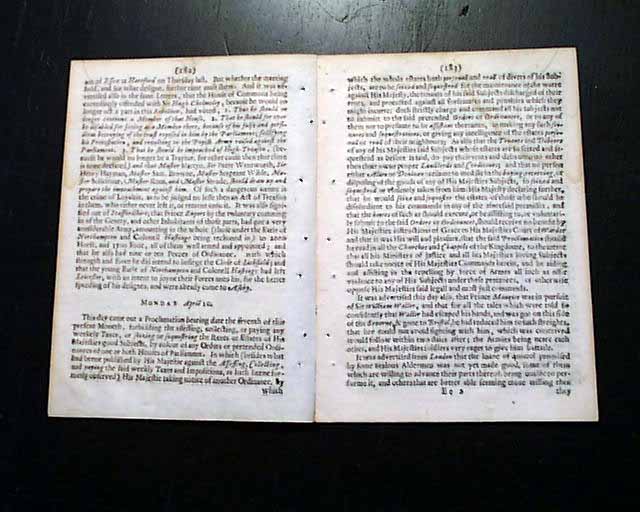 (182)
of Essex at Hereford on Thursday last. But whether the meeting
hold, and for what designe, further time must shew. And it was
the House of Commons being
exceedingly offended with Sir Hugh Cholmley, because he would no
longer act a part in this Rebellion, had voted, 1. That he should no
longer continue a Member of that House. 2. That he should for ever
be disabled for sitting as a Member there, because of his false and
betraying of the trust reposed in him by the Parliament, falsifying
his Protestation, and revolting to the Popish Army raised against the
Parliament. 3. That he should be impeached of High Treason, (because
he would no longer be a Traytor, for other cause then that there
is none declared,) and that Master Martyn, Sir Peter Wentworth, Sir
Henry Hayman, Master Sam. Browne, Master Serjeant Wilde, Master
Solicitour, Master and Master should draw up and
prepare the impeachment against him. Of such a dangerous nature is
the crime of Loyaltie, as to be judged no lesse then an Act of Treason
in them, who either never left it, or returne unto it. It was also signified
out of Staffordshire, that Prince Rupert by the voluntary comming
in of the Gentry, and other Inhabitants of those parts, had got a very
considerable Army, amounting to the whole (those under the Earle of
Northampton and Colonel Hastings being reckoned in) to 2000
Horse, and Foot, all of them well armed and appointed; and
that he also had nine or ten Peeces of Ordinance. with which
strength and force he did intend to besiege the Close of Lichfield; and
that the young Earle of Northampton and Colonell Hastings had left
Leicester, with an intent to joyne their Forces unto his, for the better
speeding of his designes, and were already come to Ashby.
MONDAY April 10.
This day came out a Proclamation bearing date the seventh of this
present Moneth, forbidding the assessing, collecting, or paying any
weekely Taxes, or seizing or sequestring the Rents or Estates of His
Majesties good Subjects, by colour of any Orders or pretended Ordinances
of one or both Houses of Parliament. In which (besides what
had beene published by His Majestie against the Assessing, Collecting
and paying the said weekly Taxes and Impositions, as hath beene formerly
observed) His Majestie taking notice of another Ordinance, by
which
(183)
which the whole estates both personall and reall of divers of his Subjects,
are to be seized and sequestred for the maintenance of the warre
against His Majesty, the tenants of his said Subjects discharged of their
rents, and protected against all forfeitures and penalties which they
might incurre: doth strictly charge and command all his Subjects not
to submit to the said pretended Orders or Ordinances, or to any of
them nor to presume to be assistant thereunto, in making such
and Sequestrations, or giving any intelligence of the estates personall
or reall of their neighbours: As also that the Tenants and Debters
of any of His Majesties said Subjects whose estates are so seized and sequestred
as before is said, do pay their rents and debts unto no other
then their owne proper Landlords and Creditours; and that no person
either Alien or Denizen presume to meddle in the buying, receiving, or
disposing of the goods of any of His Majesties Subjects, so seized and
sequestred or violently taken from them: His Majesty declaring further,
that he would seize and sequester the estates of those who should be
disobedient to his commands in any of the aforesaid premisses; and
that the heires of such as should execute, or be assisting to, or voluntarily
submit to the said Orders or Ordinances, should receive no benefit by
His Majesties instructions of Grace to His Majesties Court of Wards
and that it was His will and pleasure, that the said Proclamation should
be read in all the Churches and Chappels of the Kingdome, to the intent
that all his Ministers of Justice and all his Majesties loving Subjects
should take notice of His Majesties Commands herein, and be aiding
and assisting in the repelling by force of Armes all such as offer
violence to any of His Subjects under those pretences, or either
oppose His Majesties said legall and most just commands.
It was advertised this day also, that Prince Maurice was in pursuite
of Sir William Waller, and that for all the tales which were told so
confidently that Waller had escaped his hands, and was got on this side
of the Severne, & gone to Bristol, he had reduced him to such straights,
that he could not avoid fighting with him, which was conceived
would follow within two daies after, the Armies being neere each
other, and His Majesties soldiers very eager to give him battaile.
It was advertised from London that the loane of promised
by some zealous Aldermen was not yet made good, some of them
which are willing to advance their parts thereof, being unable to performe
it, and others that are better able seeming more willing then
Bb 2
they